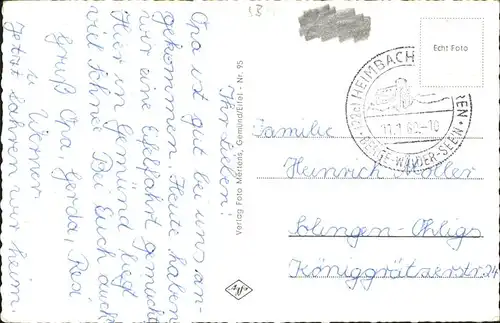 Ihr Lieben!
Opa ist gut bei uns an-
gekommen. Heute haben
wir eine Eifelfahrt gemacht
Hier in Gemünd liegt
viel Schnee. Bei Euch auch?
Gruß Opa, Gerda, Resi
u. Werner.
Jetzt fahren wir heim.
Verlag Foto Mertens, Gemünd/Eifel - Nr. 95
Agfa
Echt Foto
22c) HEIMBACH
11.1.62-18
Familie
Heinrich Möller
Solingen-Ohligs
Königgrätzerstr. 24